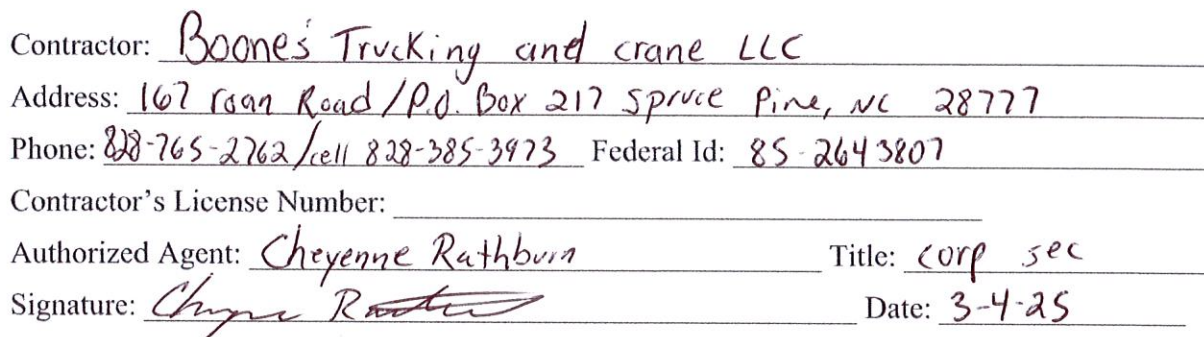 Contractor: Boone's Trucking and crane LLC
Address: 167 roan Road / P.O. Box 217 Spruce Pine, NC 28777
Phone: 828-765-2762 / cell 828-385-3973 Federal Id: 85-2643807
Contractor's License Number:
Authorized Agent: Cheyenne Rathburn Title: corp sec
Signature: Date: 3-4-25